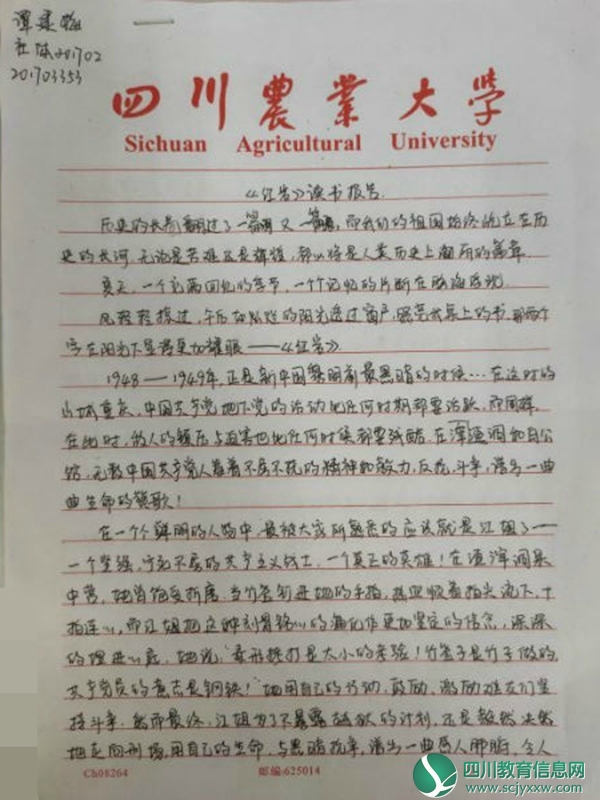 社体201702
201703353
四川农业大学
Sichuan Agricultural University
《红岩》读书报告
历史的长卷翻过了一篇又一篇，而我们的祖国始终屹立在历
史的长河，无论是苦难还是辉煌，都必将是人类历史上的篇章
夏天，一个充满回忆的季节，一个个记忆的片断在脑海浮现
风轻轻掠过，午后的阳光透过窗户，照亮我桌上的书，那两个
字在阳光下显得更加耀眼——《红岩》
1948——1949年，正是新中国黎明前最黑暗的时候…在这时的
山城重庆，中国共产党地下党的活动比任何时期都要活跃，而同样
在此时，敌人的镇压与迫害也比任何时候都要残酷，在渣滓洞和白公
馆，无数中国共产党人靠着不屈不挠的精神和毅力，反抗，斗争，谱写一曲
曲生命的赞歌！
在一个个鲜明的人物中，最被大家所熟悉的应该就是江姐了——
一个坚强，宁死不屈的共产主义战士，一个真正的英雄！在渣滓洞集
中营，她曾饱受折磨，当竹签钉进她的手指，热血顺着指尖流下，十
指连心，而江姐把这种刻骨铭心的痛化作更加坚定的信念，深深
的埋进心底，她说："毒刑拷打是太小的考验！竹签子是竹子做的，
共产党员的意志是钢铁！"她用自己的行动，鼓励，激励难友们坚
持斗争，然而最终，江姐为了不暴露越狱的计划，还是毅然决然
地走向刑场，用自己的生命，与黑暗抗争，谱写一曲感人肺腑，令人
Ch08264 邮编:625014
四川教育信息网
www.scjyxxw.com